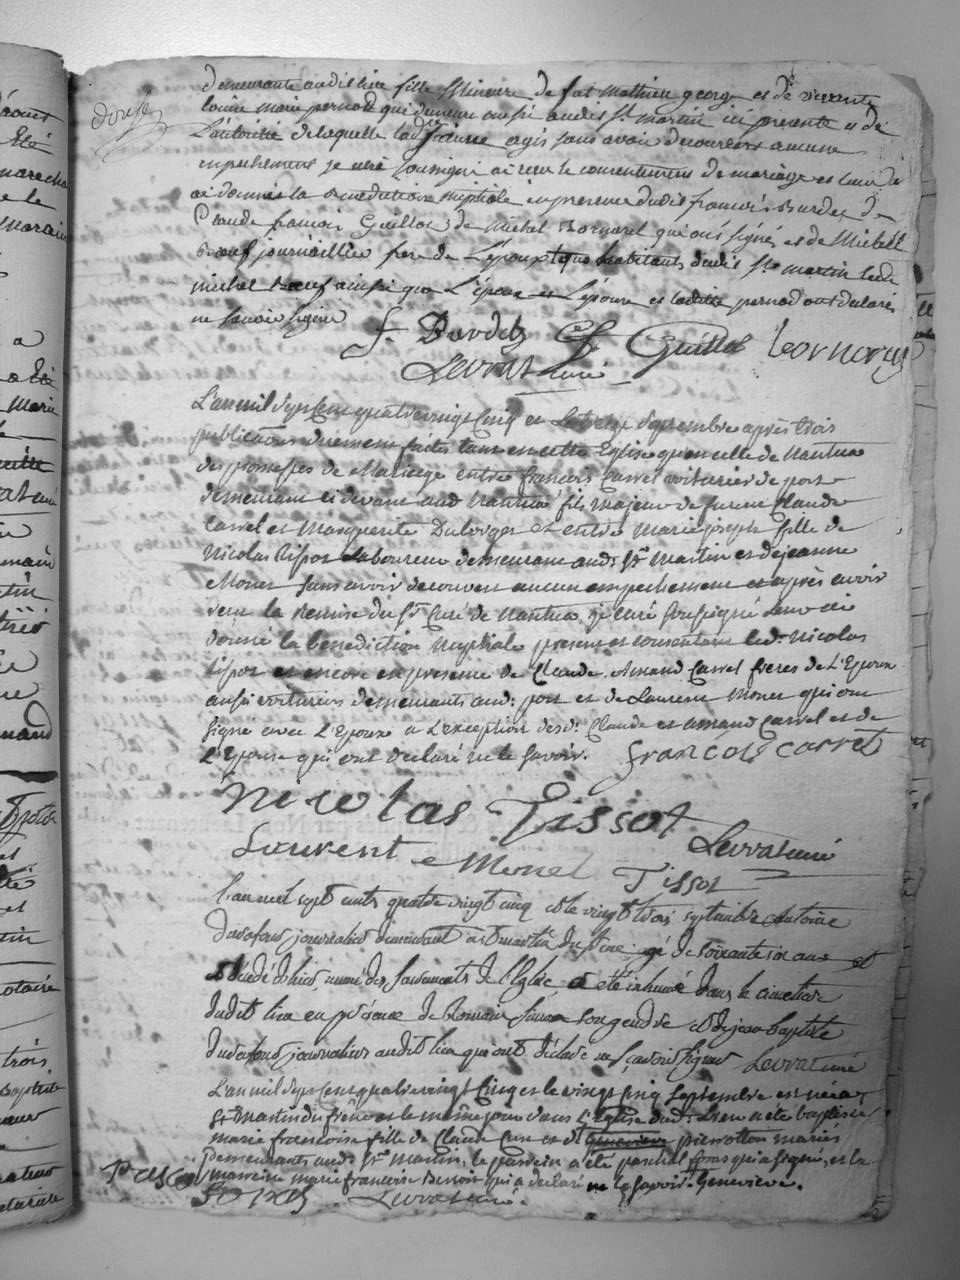 demeurante audit lieu fille mineure de fut Mathieu george et de vivante
louise marie pernod qui demeure aussi audit St martin ici presente et de
L'autorité de laquelle lad. future agis sans avoir decouvert aucune
empechement je curé soussigné ai reçu le consentement de mariage et leur
ai donné la Benediction nuptiale en presence dudit francois Burdet de
Claude francois Guillot de Michel Bornarel qui ont signés et de Michel
journaillier pere de L'epoux tous habitants dudit St martin ledit
michel ainsi que L'epoux et L'epouse et ladite pernod ont declaré
ne savoir signer
f. Burdet C f Guillot Bornarel
Levrat curé
L'an mil sept cent quatre vingt Cinq et le septembre après trois
publications duement faites tant en cette Eglise qu'en celle de Nantua
des promesses de Mariage entre francois Carrel voiturier de port
demeurant ci devant aud Nantua fils majeur de Claude
Carrel et Marguerite et entre Marie joseph fille de
Nicolas Tissot laboureur demeurant aud: St Martin et de jeanne
Monet sans avoir decouvert aucun empechement et après avoir
reçu la remise du Sr Curé de Nantua, je curé soussigné leur ai
donné la benediction nuptiale present et consentant led: Nicolas
Tissot et encore en presence de Claude, Amand Carrel freres de L'Epoux
aussi voituriers demeurants aud: port et de Laurent Monet qui ont
signé avec L'Epoux a L'exception desd: Claude et amand Carrel et de
L'Epouse qui ont declaré ne le savoir. francois carret
nicolas Tissot
Levrat curé
Laurent Monet Tissot
L'an mil sept cents quatre vingt cinq et le vingt trois septembre Antoine
journalier demeurant a St martin du frêne, agé de soixante six ans et
décédé d'hier, muni des sacrements de l'Eglise, a été inhumé dans le cimetiere
dudit lieu en présence de Romain son gendre et de jean baptiste
journalier audit lieu qui ont déclaré ne sçavoir signer Levrat curé
L'an mil Sept Cent quatre vingt Cinq et le vingt Cinq Septembre est née a
St Martin du frêne et le même jour dans L'Eglise dud: Lieu a eté baptisée
marie francoise fille de Claude et de Genevieve pierrotton mariés
Demeurants aud: St Martin, le parrein a été pascal qui a signé, et la
marreine marie francoise qui a declaré ne le savoir. Genevieve.
Pascal
Levrat curé.